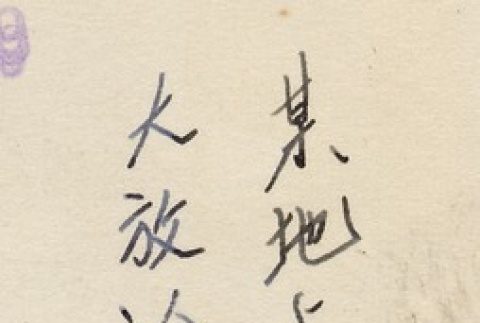 某地
大放